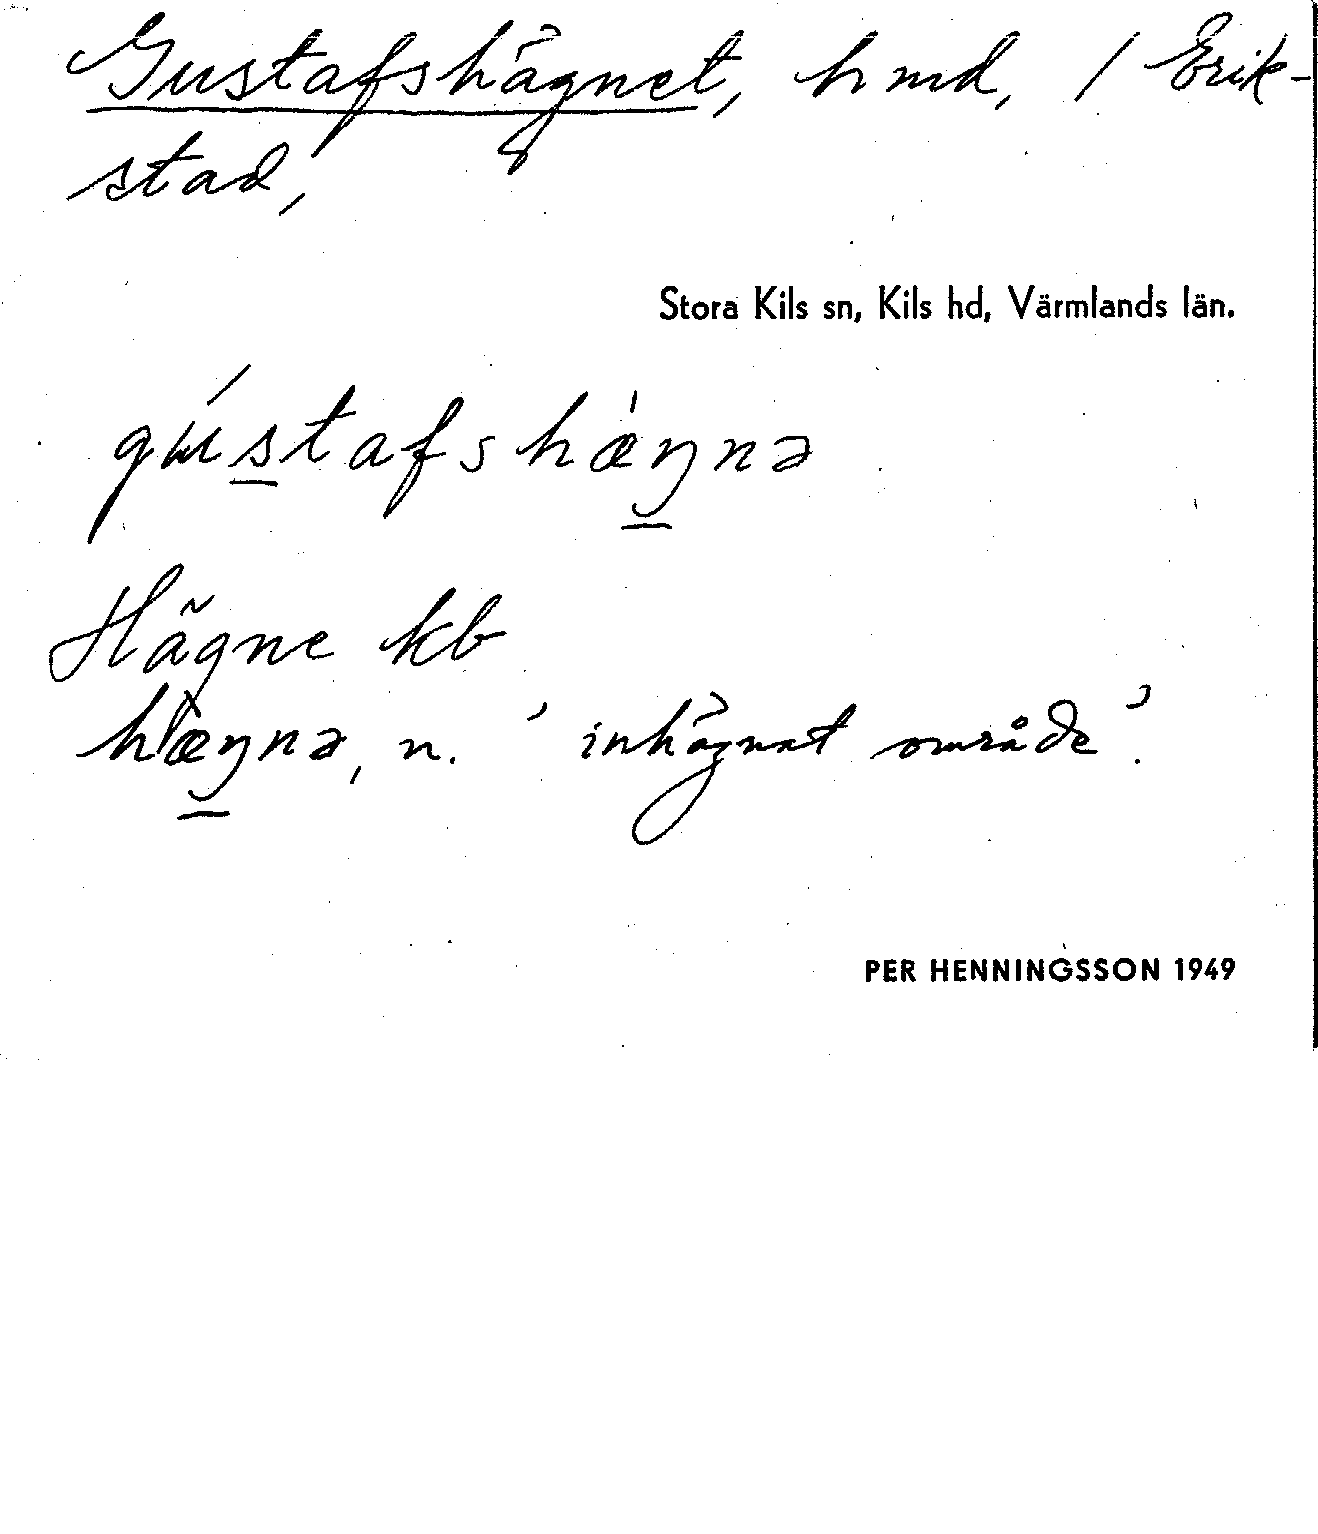 Gustafshägnet, hmd, / Erik-
stad,
Stora Kils sn, Kils hd, Värmlands län.
gústafshæ̀ŋnə
Hägne kb
hæ̀ŋnə, n. ' inhägnat område '.
PER HENNINGSSON 1949